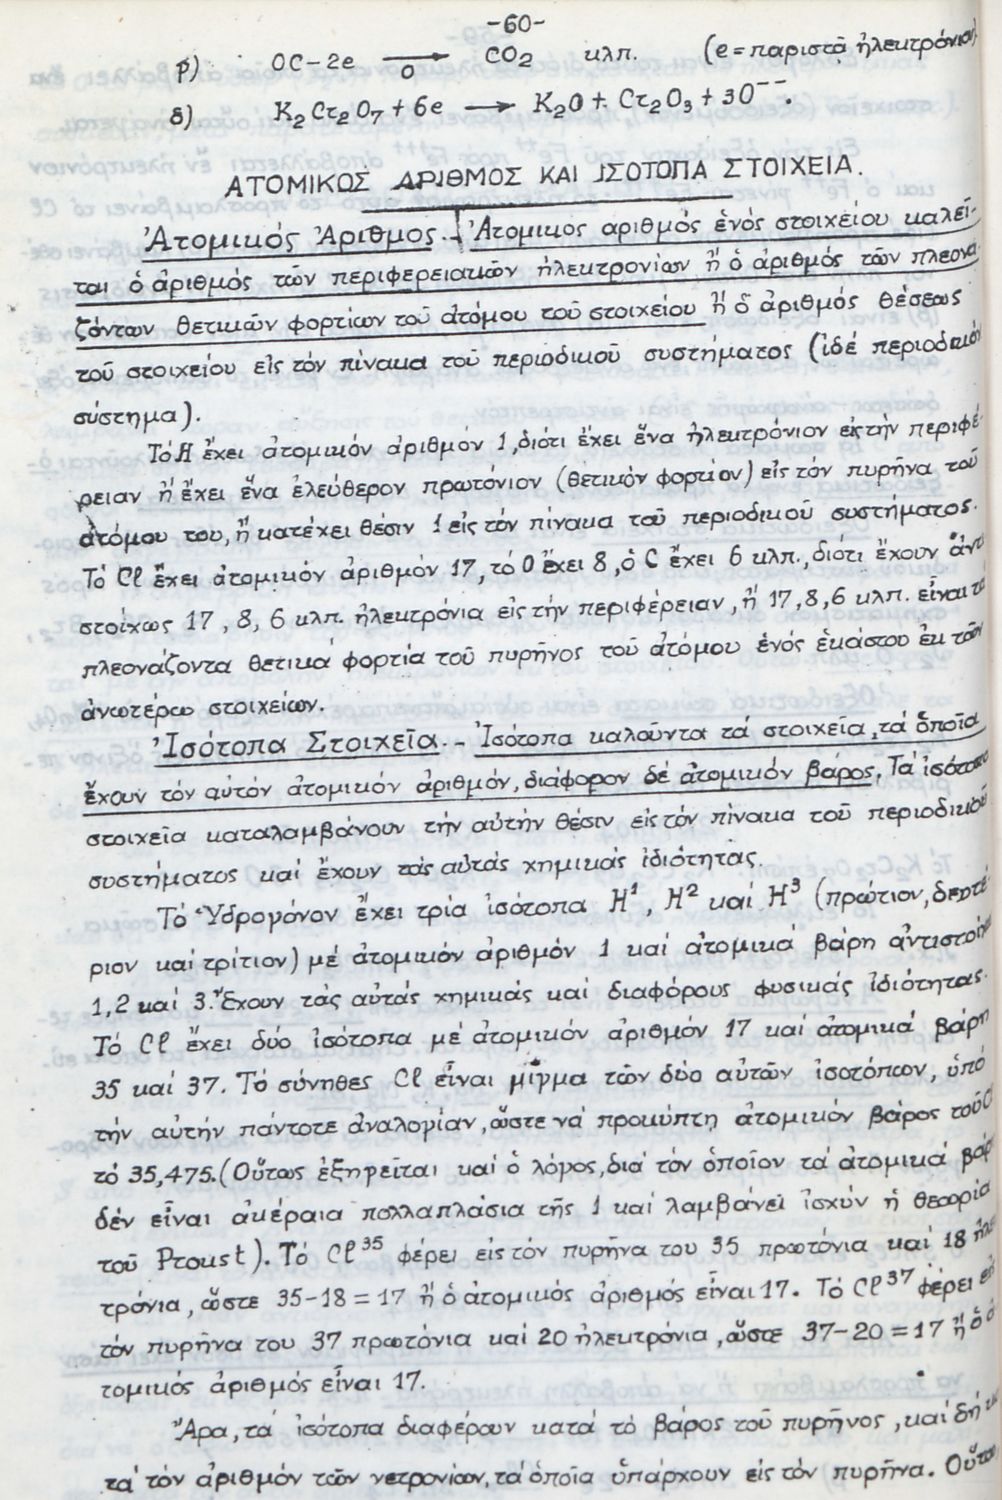 -60-
γ) OC-2e → CO2 κλπ. (e=παριστᾷ ἠλεκτρόνιον).
O
δ) K2Cr2O7+6e → K2O+Cr2O3+3O⁻⁻.
ΑΤΟΜΙΚΟΣ ΑΡΙΘΜΟΣ ΚΑΙ ΙΣΟΤΟΠΑ ΣΤΟΙΧΕΙΑ.
Ἀτομικός Ἀριθμος.- Ἀτομικος αριθμός ἑνός στοιχείου καλεῖ-
ται ὁ ἀριθμός τῶν περιφερειακῶν ἠλεκτρονίων ἤ ὁ ἀριθμός τῶν πλεονα-
ζόντων θετικῶν φορτίων τοῦ ἀτόμου τοῦ στοιχείου ἤ ὁ ἀριθμός θέσεως
τοῦ στοιχείου εἰς τόν πίνακα τοῦ περιοδικοῦ συστήματος (ἰδέ περιοδικόν
σύστημα).
Τό H ἔχει ἀτομικόν ἀριθμον 1, διότι ἔχει ἕνα ἠλεκτρόνιον εἰς τήν περιφέ-
ρειαν ἤ ἔχει ἕνα ἐλεύθερον πρωτόνιον (θετικόν φορτίον) εἰς τόν πυρῆνα τοῦ
ἀτόμου του, ἤ κατέχει θέσιν 1 εἰς τόν πίνακα τοῦ περιοδικοῦ συστήματος.
Τό Cl ἔχει ἀτομικόν ἀριθμόν 17, τό O ἔχει 8, ὁ C ἔχει 6 κλπ., διότι ἔχουν ἀντι
στοίχως 17, 8, 6 κλπ. ἠλεκτρόνια εἰς τήν περιφέρειαν, ἤ 17, 8, 6 κλπ. εἶναι τά
πλεονάζοντα θετικά φορτία τοῦ πυρῆνος τοῦ ἀτόμου ἑνός ἑκάστου ἐκ τῶν
ἀνωτέρω στοιχείων.
Ἰσότοπα Στοιχεῖα.- Ἰσότοπα καλοῦντα τά στοιχεῖα, τά ὁποῖα
ἔχουν τόν αὐτόν ἀτομικόν ἀριθμόν, διάφορον δέ ἀτομικόν βάρος. Τά ἰσότοπα
στοιχεῖα καταλαμβάνουν τήν αὐτήν θέσιν εἰς τόν πίνακα τοῦ περιοδικοῦ
συστήματος καί ἔχουν τάς αὐτάς χημικας ἰδιότητας.
Τό Ὑδρογόνον ἔχει τρία ἰσότοπα H¹, H² καί H³ (πρώτιον, δευτέ-
ριον καί τρίτιον) μέ ἀτομικόν ἀριθμόν 1 καί ἀτομικά βάρη ἀντιστοίχως
1, 2 καί 3. Ἔχουν τάς αὐτάς χημικάς καί διαφόρους φυσικάς ἰδιότητας.
Τό Cl ἔχει δύο ἰσότοπα μέ ἀτομικόν ἀριθμόν 17 καί ἀτομικά βάρη
35 καί 37. Τό σύνηθες Cl εἶναι μῖγμα τῶν δύο αὐτῶν ἰσοτόπων, ὑπό
τήν αὐτήν πάντοτε ἀναλογίαν, ὥστε νά προκύπτη ἀτομικόν βάρος τοῦ Cl
τό 35,475. (Οὕτως ἐξηγεῖται καί ὁ λόγος, διά τόν ὁποῖον τά ἀτομικά βάρη
δέν εἶναι ἀκέραια πολλαπλάσια τῆς 1 καί λαμβάνει ἰσχύν ἡ θεωρία
τοῦ Proust). Τό Cl³⁵ φέρει εἰς τόν πυρῆνα του 35 πρωτόνια καί 18 ἠλεκ
τρόνια, ὥστε 35-18=17 ἤ ὁ ἀτομικός ἀριθμός εἶναι 17. Τό Cl³⁷ φέρει εἰς
τόν πυρῆνα του 37 πρωτόνια καί 20 ἠλεκτρόνια, ὥστε 37-20=17 ἤ ὁ ἀ
τομικός ἀριθμός εἶναι 17.
Ἄρα, τά ἰσότοπα διαφέρουν κατά τό βάρος τοῦ πυρῆνος, καί δή κα
τά τόν ἀριθμόν τῶν νετρονίων, τά ὁποῖα ὑπάρχουν εἰς τόν πυρῆνα. Οὕτω